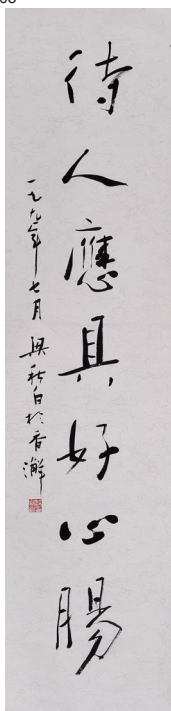 待人應具好心腸
一九九一年七月 興秋白於香濰